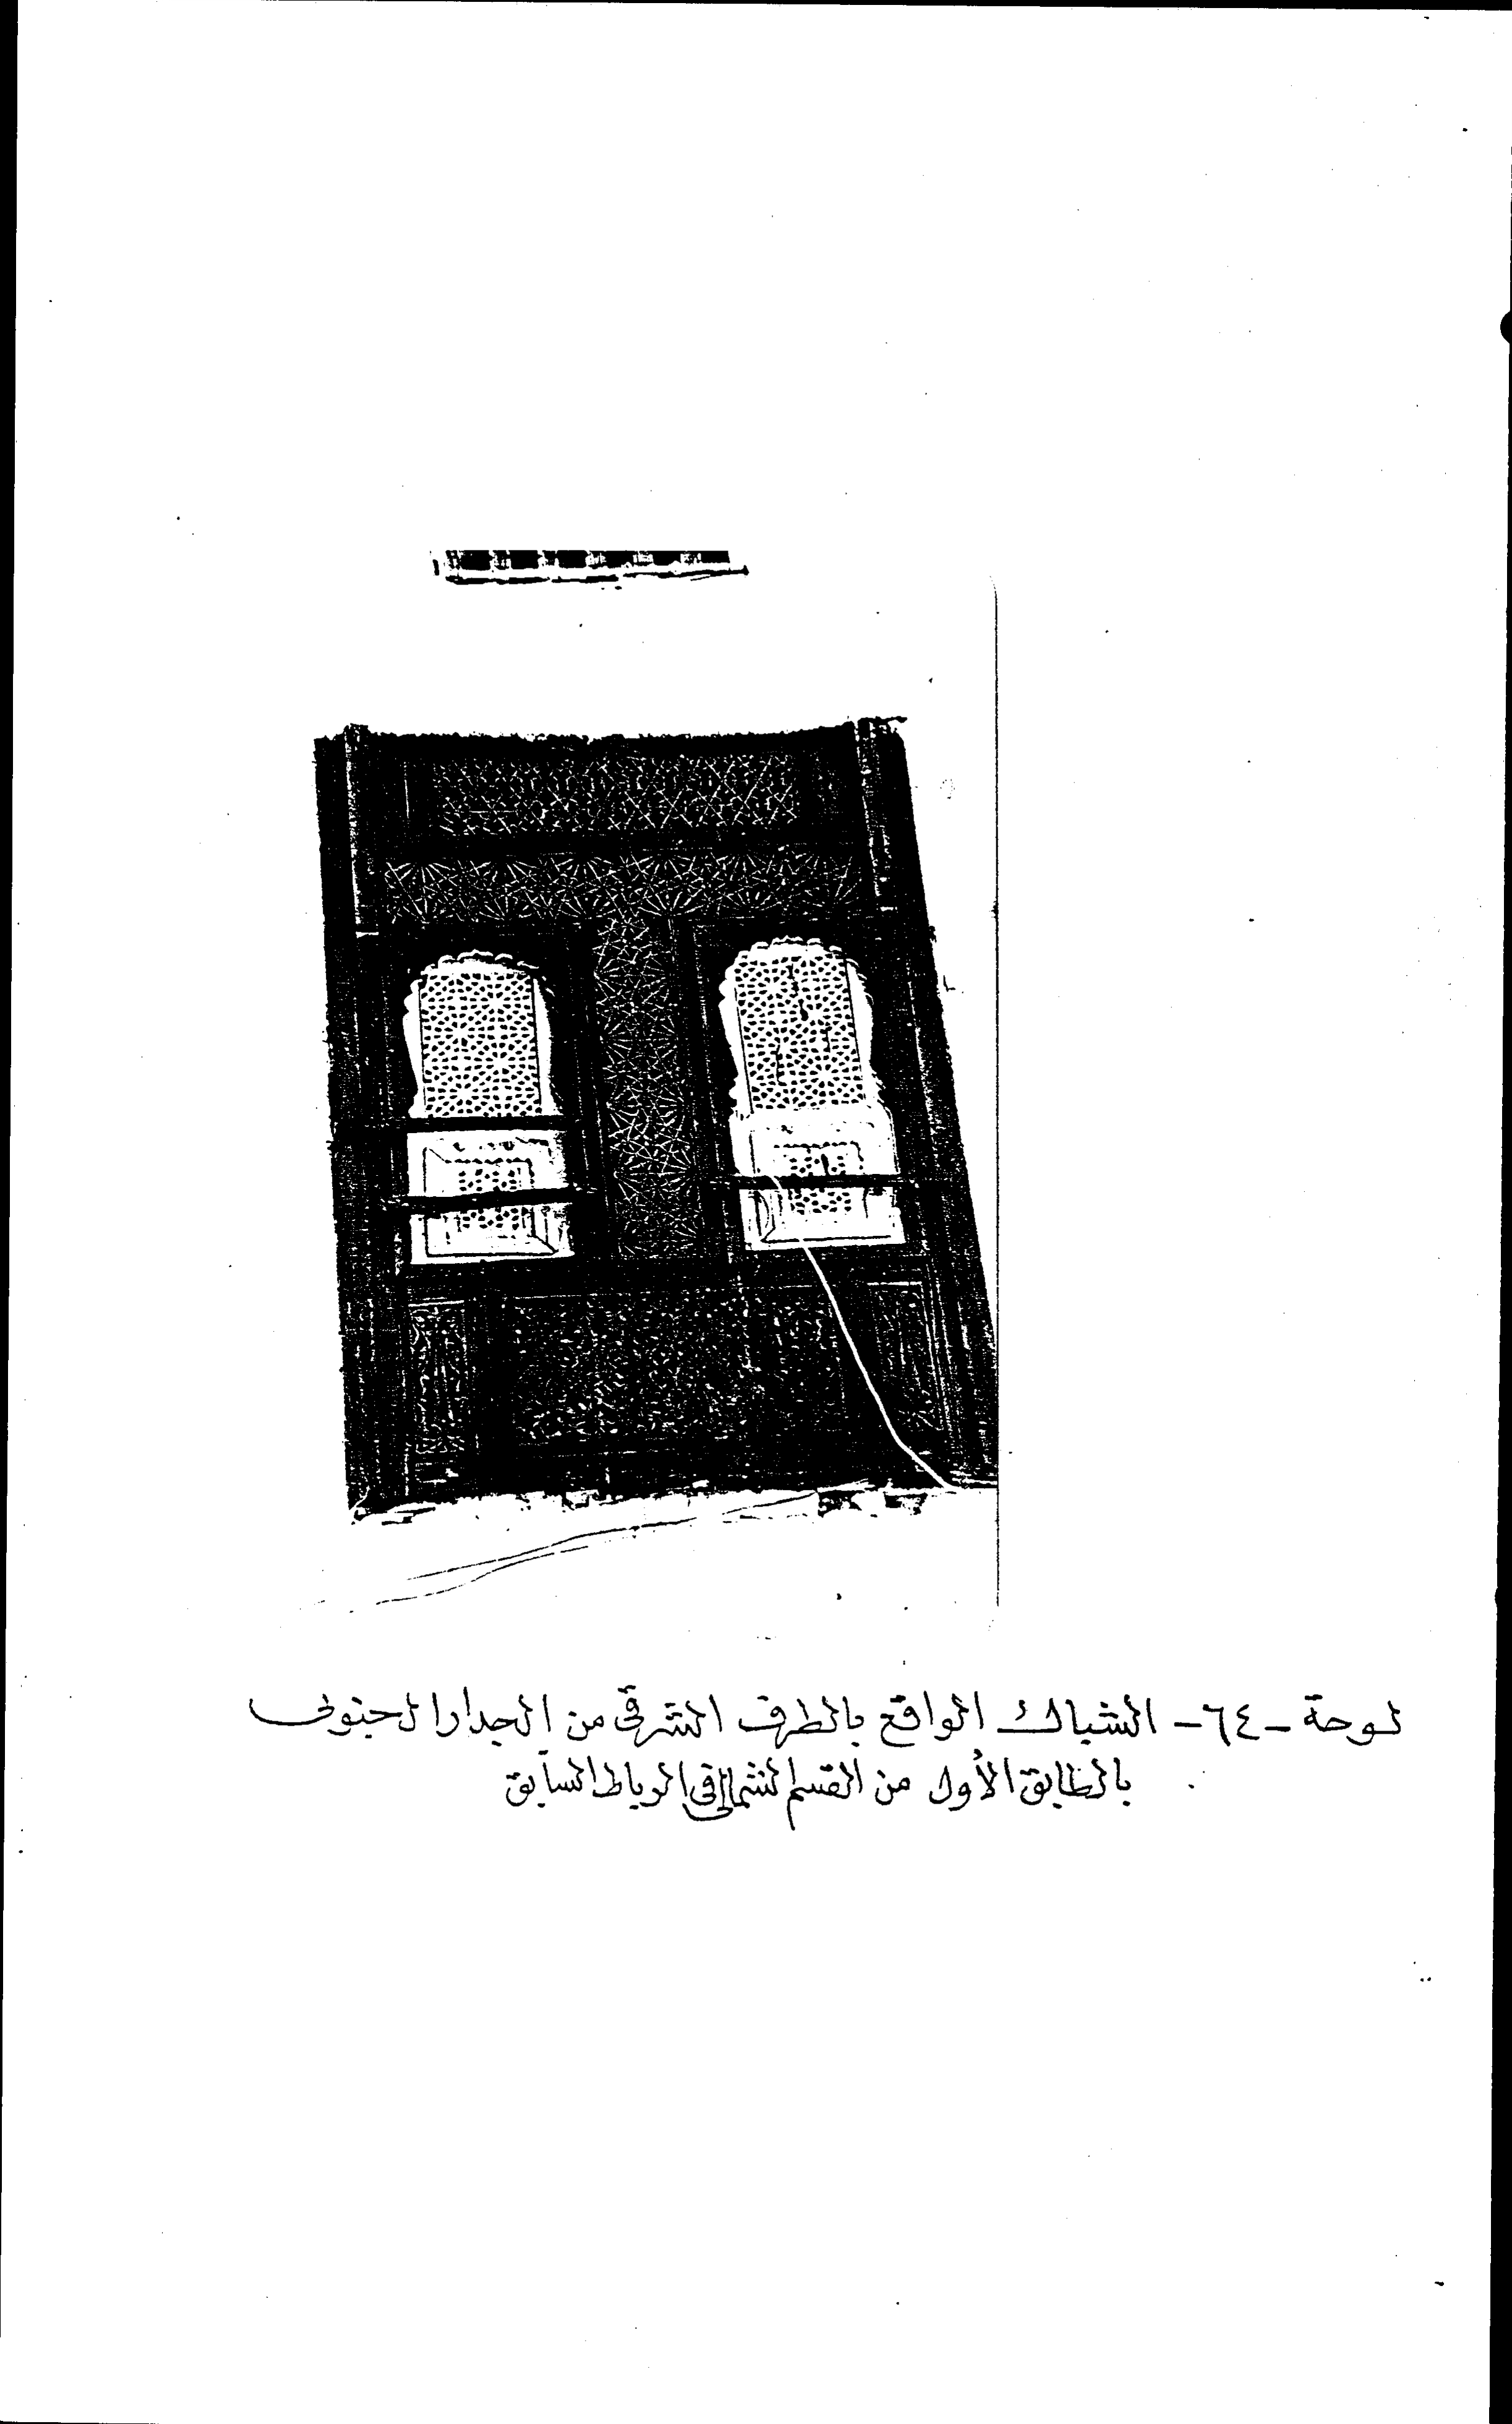 لوحة - ٦٤ - الشباك الواقع بالطرف الشرقى من الجدار الجنوبى
بالطابق الأول من القسم الشمالى فى الرباط السابق